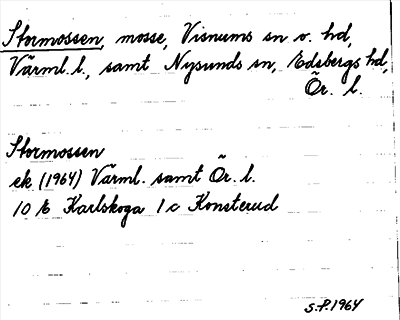 Stormossen, mosse, Visnums sn o. hd,
Värml. l., samt Nysunds sn, Edsbergs hd,
Ör. l.
Stormossen
ek (1964) Värml. samt Ör. l.
10 E Karlskoga 1 c Konsterud
S.P. 1964